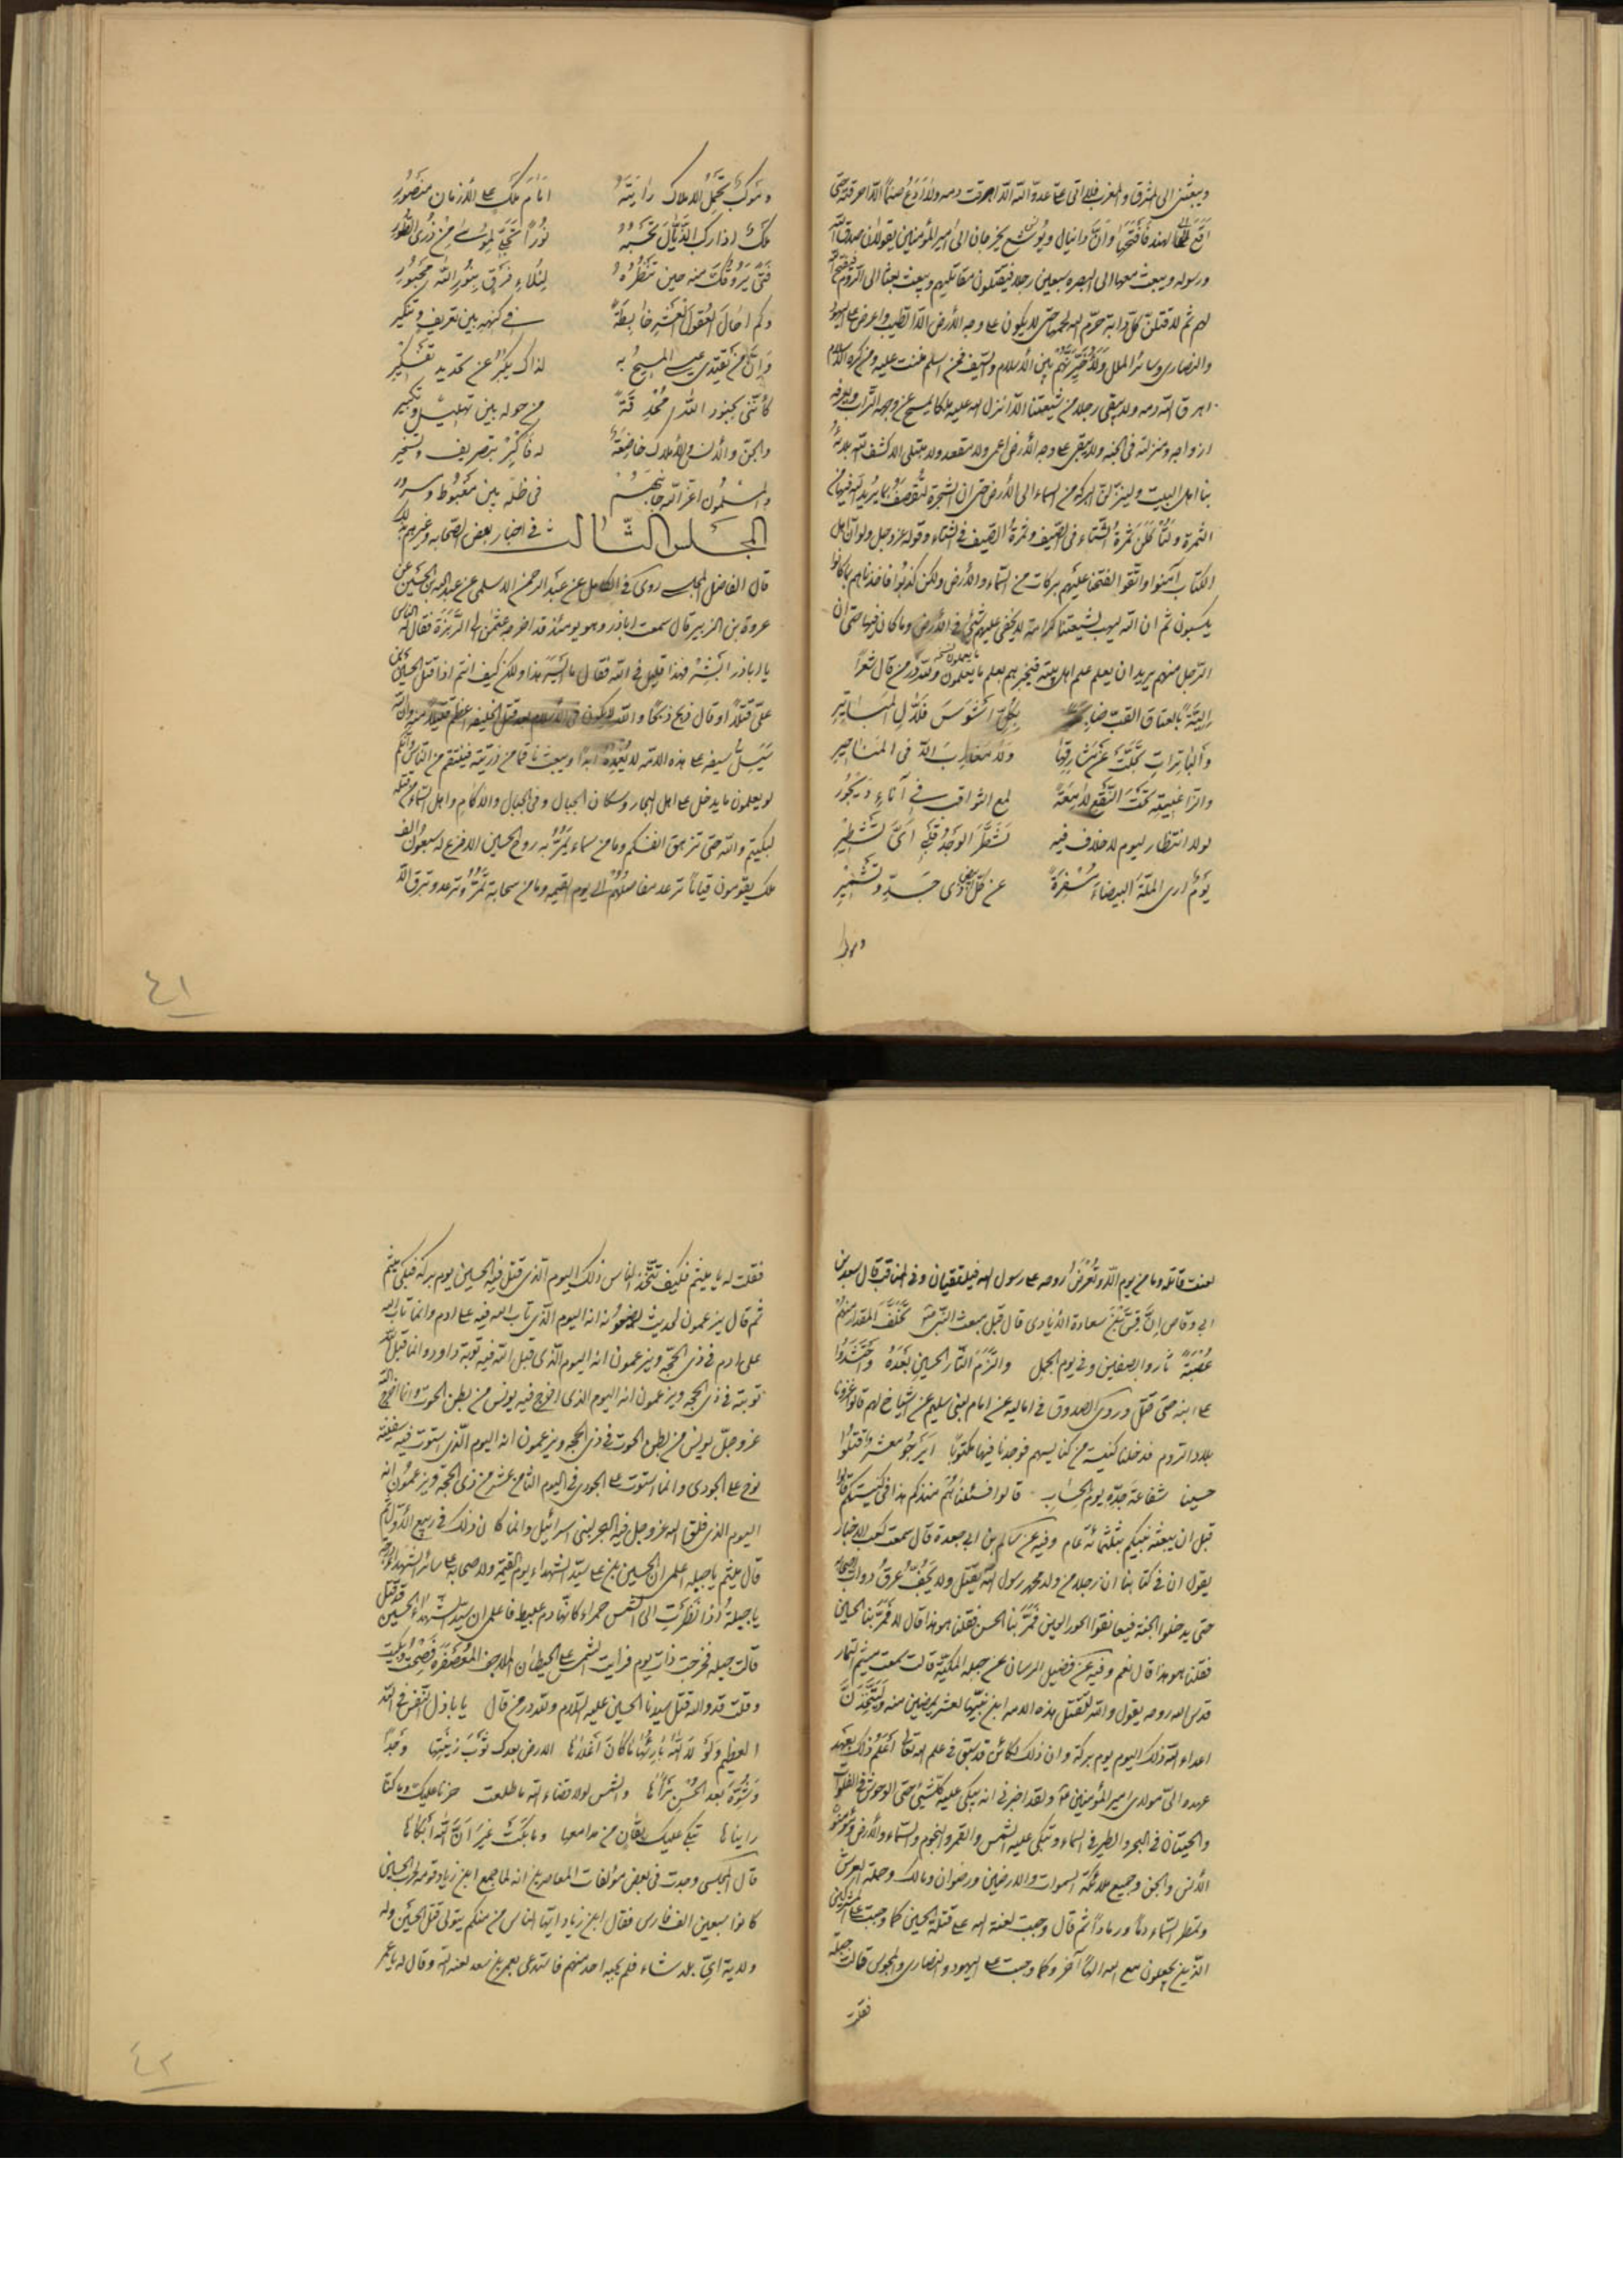 ويبعثني الى المشرق والمغرب فلا آتي على عدو لله الا اهرقت دمه ولا ادع صنما الا احرقته حتى
اقع الى الهند فأفتحها وان دانيال ويوشع يخرجان الى امير المؤمنين يقولان صدق الله
ورسوله ويبعث معهما الى البصره سبعين رجلا فيقتلون مقاتليهم ويبعث بعثا الى الروم فيفتح الله
لهم ثم لاقتلن كل دابة حرم الله لحمها حتى لا يكون على وجه الأرض الا الطيب واعرض على اليهود
والنصارى وسائر الملل ولأخيرنهم بين الأسلام والسيف فمن اسلم مننت عليه ومن كره الاسلام
اهرق الله دمه ولا يبقى رجلا من شيعتنا الا انزل الله عليه ملكا يمسح عن وجهه التراب ويعرفه
ازواجه ومنزلته في الجنه ولا يبقى على وجه الأرض اعمى ولا مقعد ولا مبتلى الا كشف الله بلائه
بنا اهل البيت ولينزلن البركة من السماء الى الأرض حتى ان الشجرة لتقصف بما يريد الله فيها من
الثمرة ولتأكلن ثمرة الشتاء في الصيف وثمرة الصيف في الشتاء وقوله عز وجل ولو ان اهل
الكتاب آمنوا واتقوا لفتحنا عليهم بركات من السماء والأرض ولكن كذبوا فاخذناهم بما كانوا
يكسبون ثم ان الله ليهب لشيعتنا كرامة لا يخفى عليهم شئ في الأرض وما كان فيها حتى ان
الرجل منهم يريد ان يعلم علم اهل بيته فيخبرهم بعلم ما يعلمون ولله در من قال شعرا
الية بالعتاق القب بكل اشوس فلال المباتير
والباترات تجلت عن مشارقها ولا مغارب الا في المناحير
والزاغبية تحت النقع لامعة لمع الثواقب في آناء ديجور
لولا انتظار ليوم لا خلاف فيه لشطر الوجد قلبي اي تشطير
يوم ارى الملة البيضاء مسفرة عن كل ذي جد وتشمير
وموكب
وموكب تحمل الاملاك رايته امام ملك على الأزمان منصور
ملك اذا ركب الذيال تحسبه نورا تجلى لموسى من ذرى الطور
فتى يروقك منه حين تنظره لئلاء فرق بنور الله محبور
وكم احال العقول العشر خابطة في كنهه بين تعريف وتنكير
وان من يقتدي عيسى المسيح به لذاك يكبر عن تحديد تفكير
كأنني بجنود الله محدقة من حوله بين تهليل وتكبير
والجن والأنس والأملاك خاضعة له فاكبر بتصريف وتسخير
والمسلمون اعز الله جانبهم في ظله بين مغبوط ومسرور
المجلس الثالث في اخبار بعض الصحابه وغيرهم بذلك
قال الفاضل المجلسي روى في الكامل عن عبد الرحمن الاسلمي عن عبد الله بن الحسين عن
عروة بن الزبير قال سمعت اباذر وهو يومئذ قد اخرجه عثمان الى الربذة فقال له الناس
يا اباذر ابشر فهذا قليل في الله فقال ما ايسر هذا ولكن كيف انتم اذا قتل الحسين بن
علي قتلا او قال ذبح ذبحا والله لا يكون في الأسلام بعد قتل الخليفه اعظم قتيلا منه وان الله
سيسل سيفه على هذه الامه لا يغمده ابدا ويبعث ناقما من ذريته فينتقم من الناس وانكم
لو يعلمون ما يدخل على اهل البحار وسكان الجبال وفي الجبال والاكام واهل السماء من قتله
لبكيتم والله حتى تزهق انفسكم وما من سماء يمر به روح الحسين الا فزع له سبعون الف
ملك يقومون قياما ترعد مفاصلهم الى يوم القيمه وما من سحابة تمر وترعد وتبرق الا
٤١
لعنت قاتله وما من يوم الا وتعرض روحه على رسول الله فيلتقيان وفي المناقب قال سعد بن
ابي وقاص ان قس بن ساعدة الأيادي قال قبل مبعث النبي ص تخلف المقدار منهم
عصبة ثاروا بصفين وفي يوم الجمل والتزم الثار الحسين بعده واحتشدوا
على ابنه حتى قتل وروى الصدوق في اماليه عن امام لبني سليم عن اشياخ لهم قالوا غزونا
بلاد الروم فدخلنا كنيسة من كنايسهم فوجدنا فيها مكتوبا ايرجو معشر قتلوا
حسينا شفاعة جده يوم الحساب قالوا فسئلناهم منذ كم هذا في كنيستكم قالوا
قبل ان يبعث نبيكم بثلثمائة عام وفيه عن سالم بن ابي جعدة قال سمعت كعب الاخبار
يقول ان في كتابنا ان رجلا من ولد محمد رسول الله يقتل ولا يجف عرق دواب اصحابه
حتى يدخلوا الجنة فيعانقوا الحور العين فمر بنا الحسن فقلنا هو هذا قال لا فمر بنا الحسين
فقلنا هو هذا قال نعم وفيه عن فضيل الرسان عن جبله المكية قالت سمعت ميثم التمار
قدس الله روحه يقول والله لتقتل هذه الامه ابن نبيها لعشر يمضين منه وليتخذن
اعداء الله ذلك اليوم يوم بركة وان ذلك لكائن قد سبق في علم الله تعالى اعلم ذلك بعهد
عهده الى مولاي امير المؤمنين ع ولقد اخبرني انه يبكي عليه كل شئ حتى الوحوش في الفلوات
والحيتان في البحر والطير في السماء وتبكي عليه الشمس والقمر والنجوم والسماء والأرض ومؤمنو
الأنس والجن وجميع ملائكة السموات والارضين ورضوان ومالك وحملة العرش
وتمطر السماء دما ورمادا ثم قال وجبت لعنة الله على قتلة الحسين كما وجبت على المشركين
الذين يجعلون مع الله الها آخر وكما وجبت على اليهود والنصارى والمجوس قالت جبلة
فقلت
فقلت له يا ميثم فكيف يتخذ الناس ذلك اليوم الذي قتل فيه الحسين يوم بركة فبكى ميثم
ثم قال يزعمون لحديث يضعونه انه اليوم الذي تاب الله فيه على ادم وانما تاب الله
على ادم في ذي الحجه ويزعمون انه اليوم الذي قبل الله فيه توبة داود وانما قبل الله
توبته في ذي الحجه ويزعمون انه اليوم الذي اخرج فيه يونس من بطن الحوت وانما اخرج الله
عز وجل يونس من بطن الحوت في ذي الحجه ويزعمون انه اليوم الذي استوت فيه سفينة
نوح على الجودي وانما استوت على الجودي في اليوم الثامن عشر من ذي الحجه ويزعمون انه
اليوم الذي فلق الله عز وجل فيه البحر لبني اسرائيل وانما كان ذلك في ربيع الأول ثم
قال ميثم يا جبله اعلمي ان الحسين بن علي سيد الشهداء يوم القيمة ولاصحابه على سائر الشهداء درجة
يا جبلة اذا نظرت الى الشمس حمراء كانها دم عبيط فاعلمي ان سيد الشهداء الحسين قد قتل
قالت جبله فخرجت ذات يوم فرأيت الشمس على الحيطان كالملاحف المعصفرة فصحت وبكيت
وقلت قد والله قتل سيدنا الحسين عليه السلام ولله در من قال يا باذل النفس في الله
العظيم ولولا الله بارئها ما كان اغلاها الارض بعدك ثوب زينتها وجدا
وشوه بعد الحسن مرآها والشمس لولا قضاء الله ما طلعت حزنا عليك وما كنا
رايناها تبكي عليك بقان من مدامعها وما بكت غير ان الله ابكاها
قال المجلسي وجدت في بعض مؤلفات المعاصرين انه لما جمع ابن زياد قومه لحرب الحسين
كانوا سبعين الف فارس فقال ابن زياد ايها الناس من منكم يتولى قتل الحسين وله
ولاية اي بلد شاء فلم يجبه احد منهم فاستدعى بعمر بن سعد لعنه الله وقال له يا عمر
٤٢